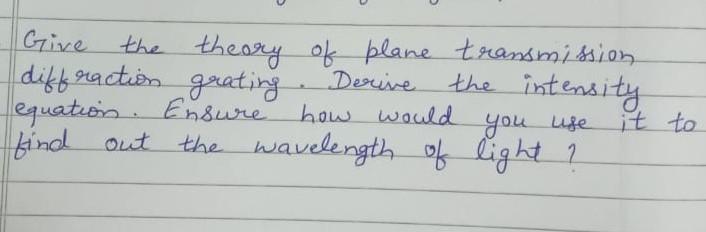 Give the theory of plane transmission
diffraction grating. Derive the intensity
equation. Ensure how would you use it to
find out the wavelength of light ?